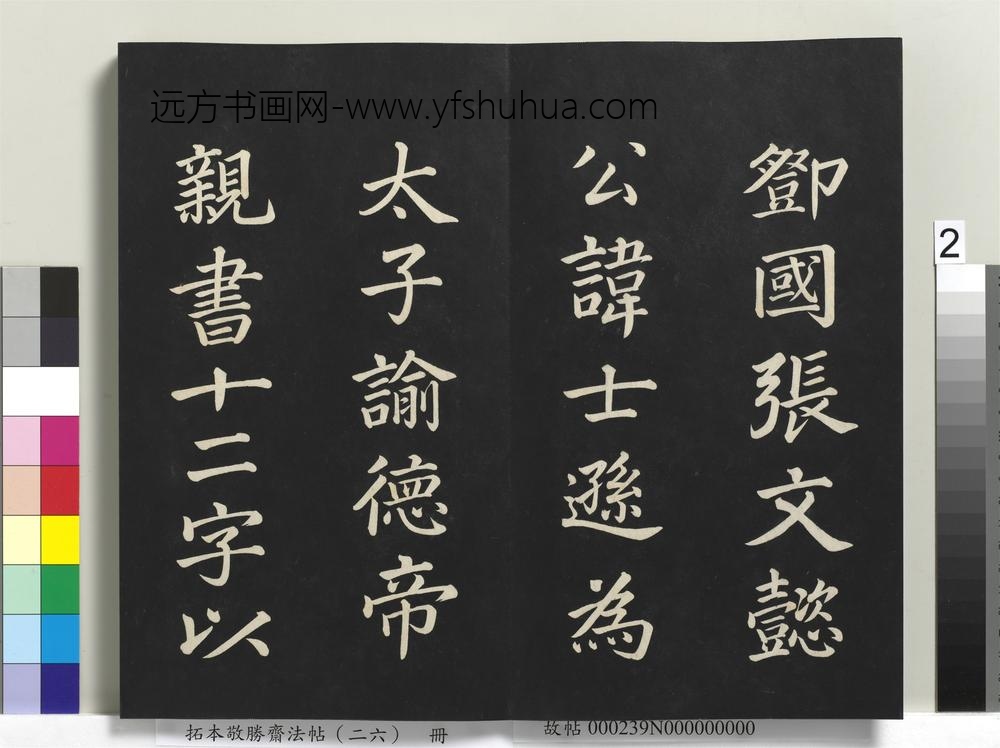 远方书画网-www.yfshuhua.com
鄧國張文懿
公諱士遜為
太子諭德帝
親書十二字以
2
拓本敬勝齋法帖（二六） 冊
故帖 000239N000000000